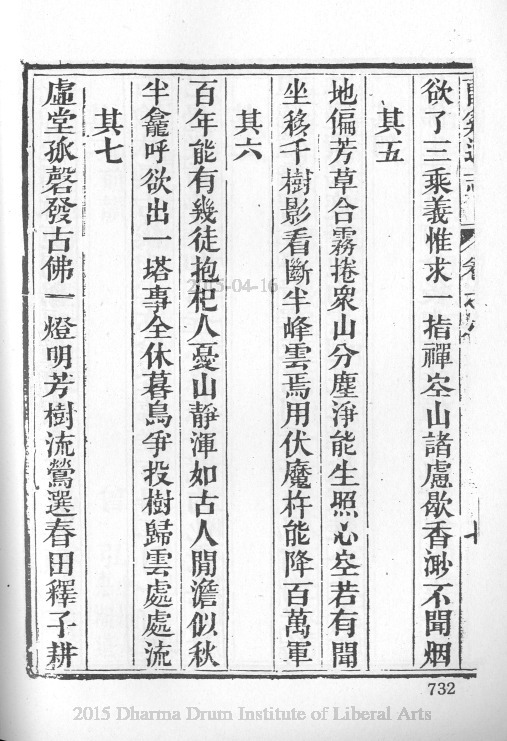 欲了三乘義惟求一指禪空山諸慮歇香渺不聞烟
其五
地偏芳草合霧捲衆山分塵淨能生照心空若有聞
坐移千樹影看斷半峰雲焉用伏魔杵能降百萬軍
其六
百年能有幾徒抱杞人憂山靜渾如古人閒澹似秋
半龕呼欲出一塔事全休暮鳥爭投樹歸雲處處流
其七
虛堂孤磬發古佛一燈明芳樹流鶯選春田釋子耕
732
2015-04-16
2015 Dharma Drum Institute of Liberal Arts